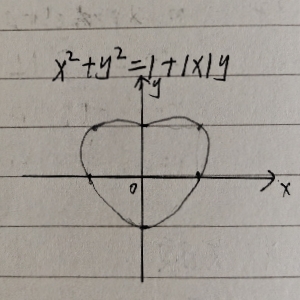 x²+y²=1+|x|y
y
0
x